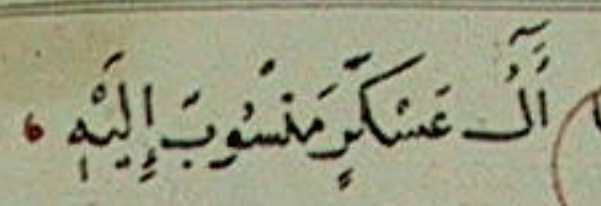 آلُ عَسْكَرٍ مَنْسُوبَ إِلَيْهِ